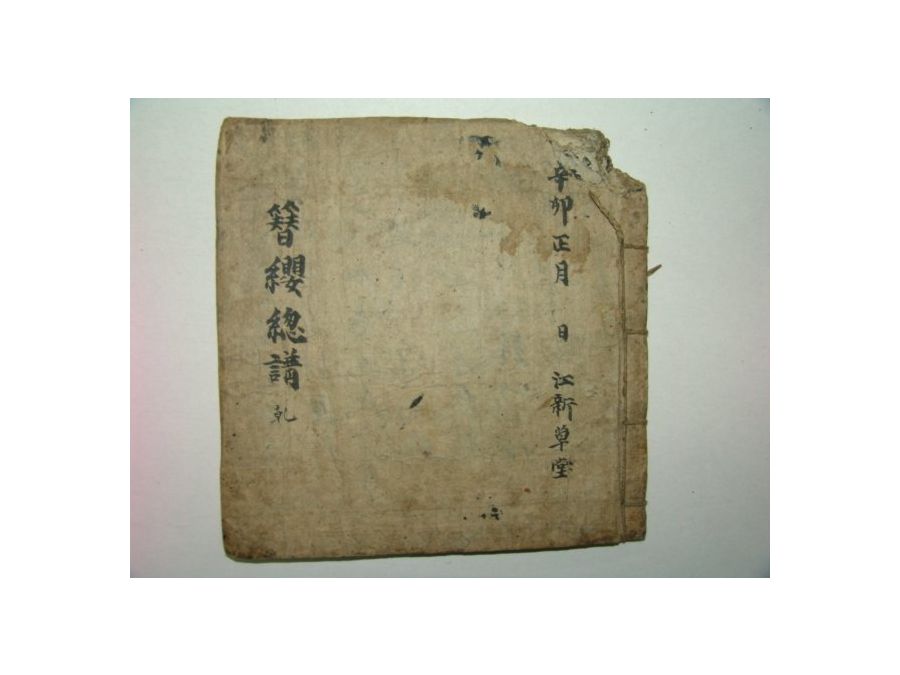 辛卯正月 日 江新草堂
簪纓總譜 乾